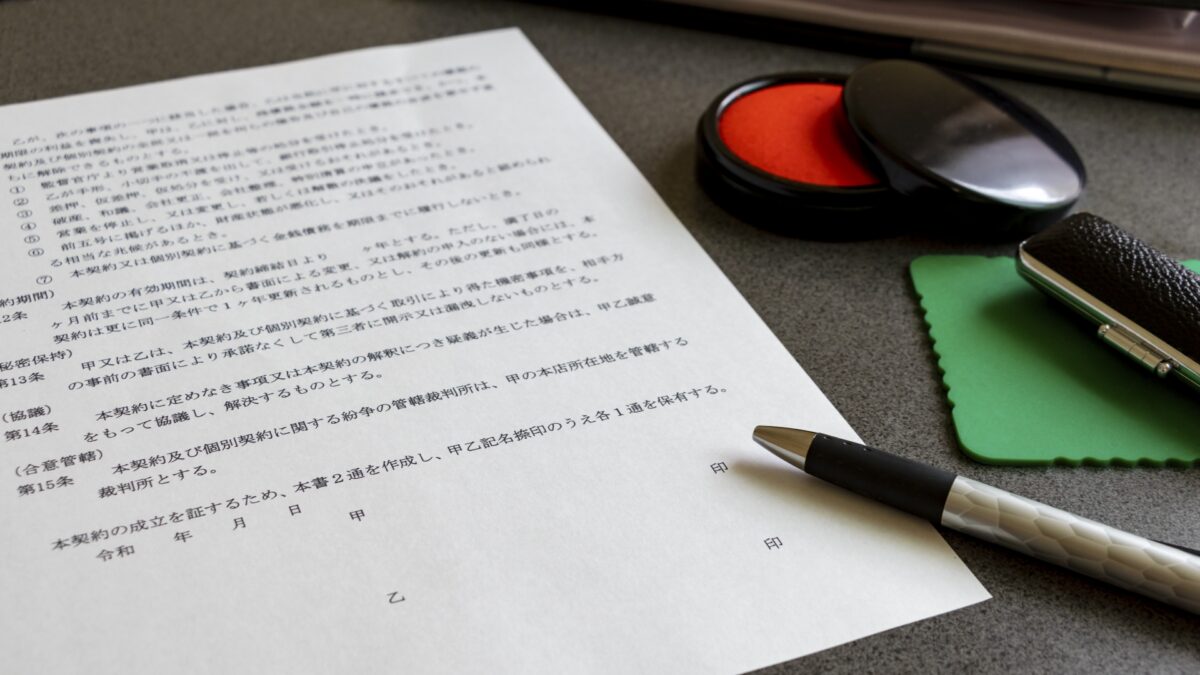 乙が、次の事項の一つに該当した場合、
期限の利益を喪失し、甲は、乙に対し、
契約及び個別契約の全部又は一部を何らの
ちに解除できるものとする。
① 監督官庁より営業取消又は停止等の処分を受けたとき。
② 乙が手形、小切手の不渡を出して、銀行取引停止処分を受けたとき。
③ 差押、仮差押、仮処分を受け、又は受けるおそれがあるとき。
④ 破産、和議、会社更正、会社整理、特別清算の申立があったとき。
⑤ 営業を停止し、又は変更し、若しくは解散の決議をしたとき。
⑥ 前五号に掲げるほか、財産状態が悪化し、又はそのおそれがあると認められ
る相当な兆候があるとき。
⑦ 本契約又は個別契約に基づく金銭債務を期限までに履行しないとき。
約期間)
2条 本契約の有効期間は、契約締結日より ヶ年とする。ただし、満了日の
ヶ月前までに甲又は乙から書面による変更、又は解約の申入のない場合には、本
契約は更に同一条件で1ヶ年更新されるものとし、その後の更新も同様とする。
秘密保持)
第13条 甲又は乙は、本契約及び個別契約に基づく取引により得た機密事項を、相手方
の事前の書面により承諾なくして第三者に開示又は漏洩しないものとする。
(協議)
第14条 本契約に定めなき事項又は本契約の解釈につき疑義が生じた場合は、甲乙誠意
をもって協議し、解決するものとする。
(合意管轄)
第15条 本契約及び個別契約に関する紛争の管轄裁判所は、甲の本店所在地を管轄する
裁判所とする。
本契約の成立を証するため、本書2通を作成し、甲乙記名捺印のうえ各1通を保有する。
令和 年 月 日 甲 印
乙 印